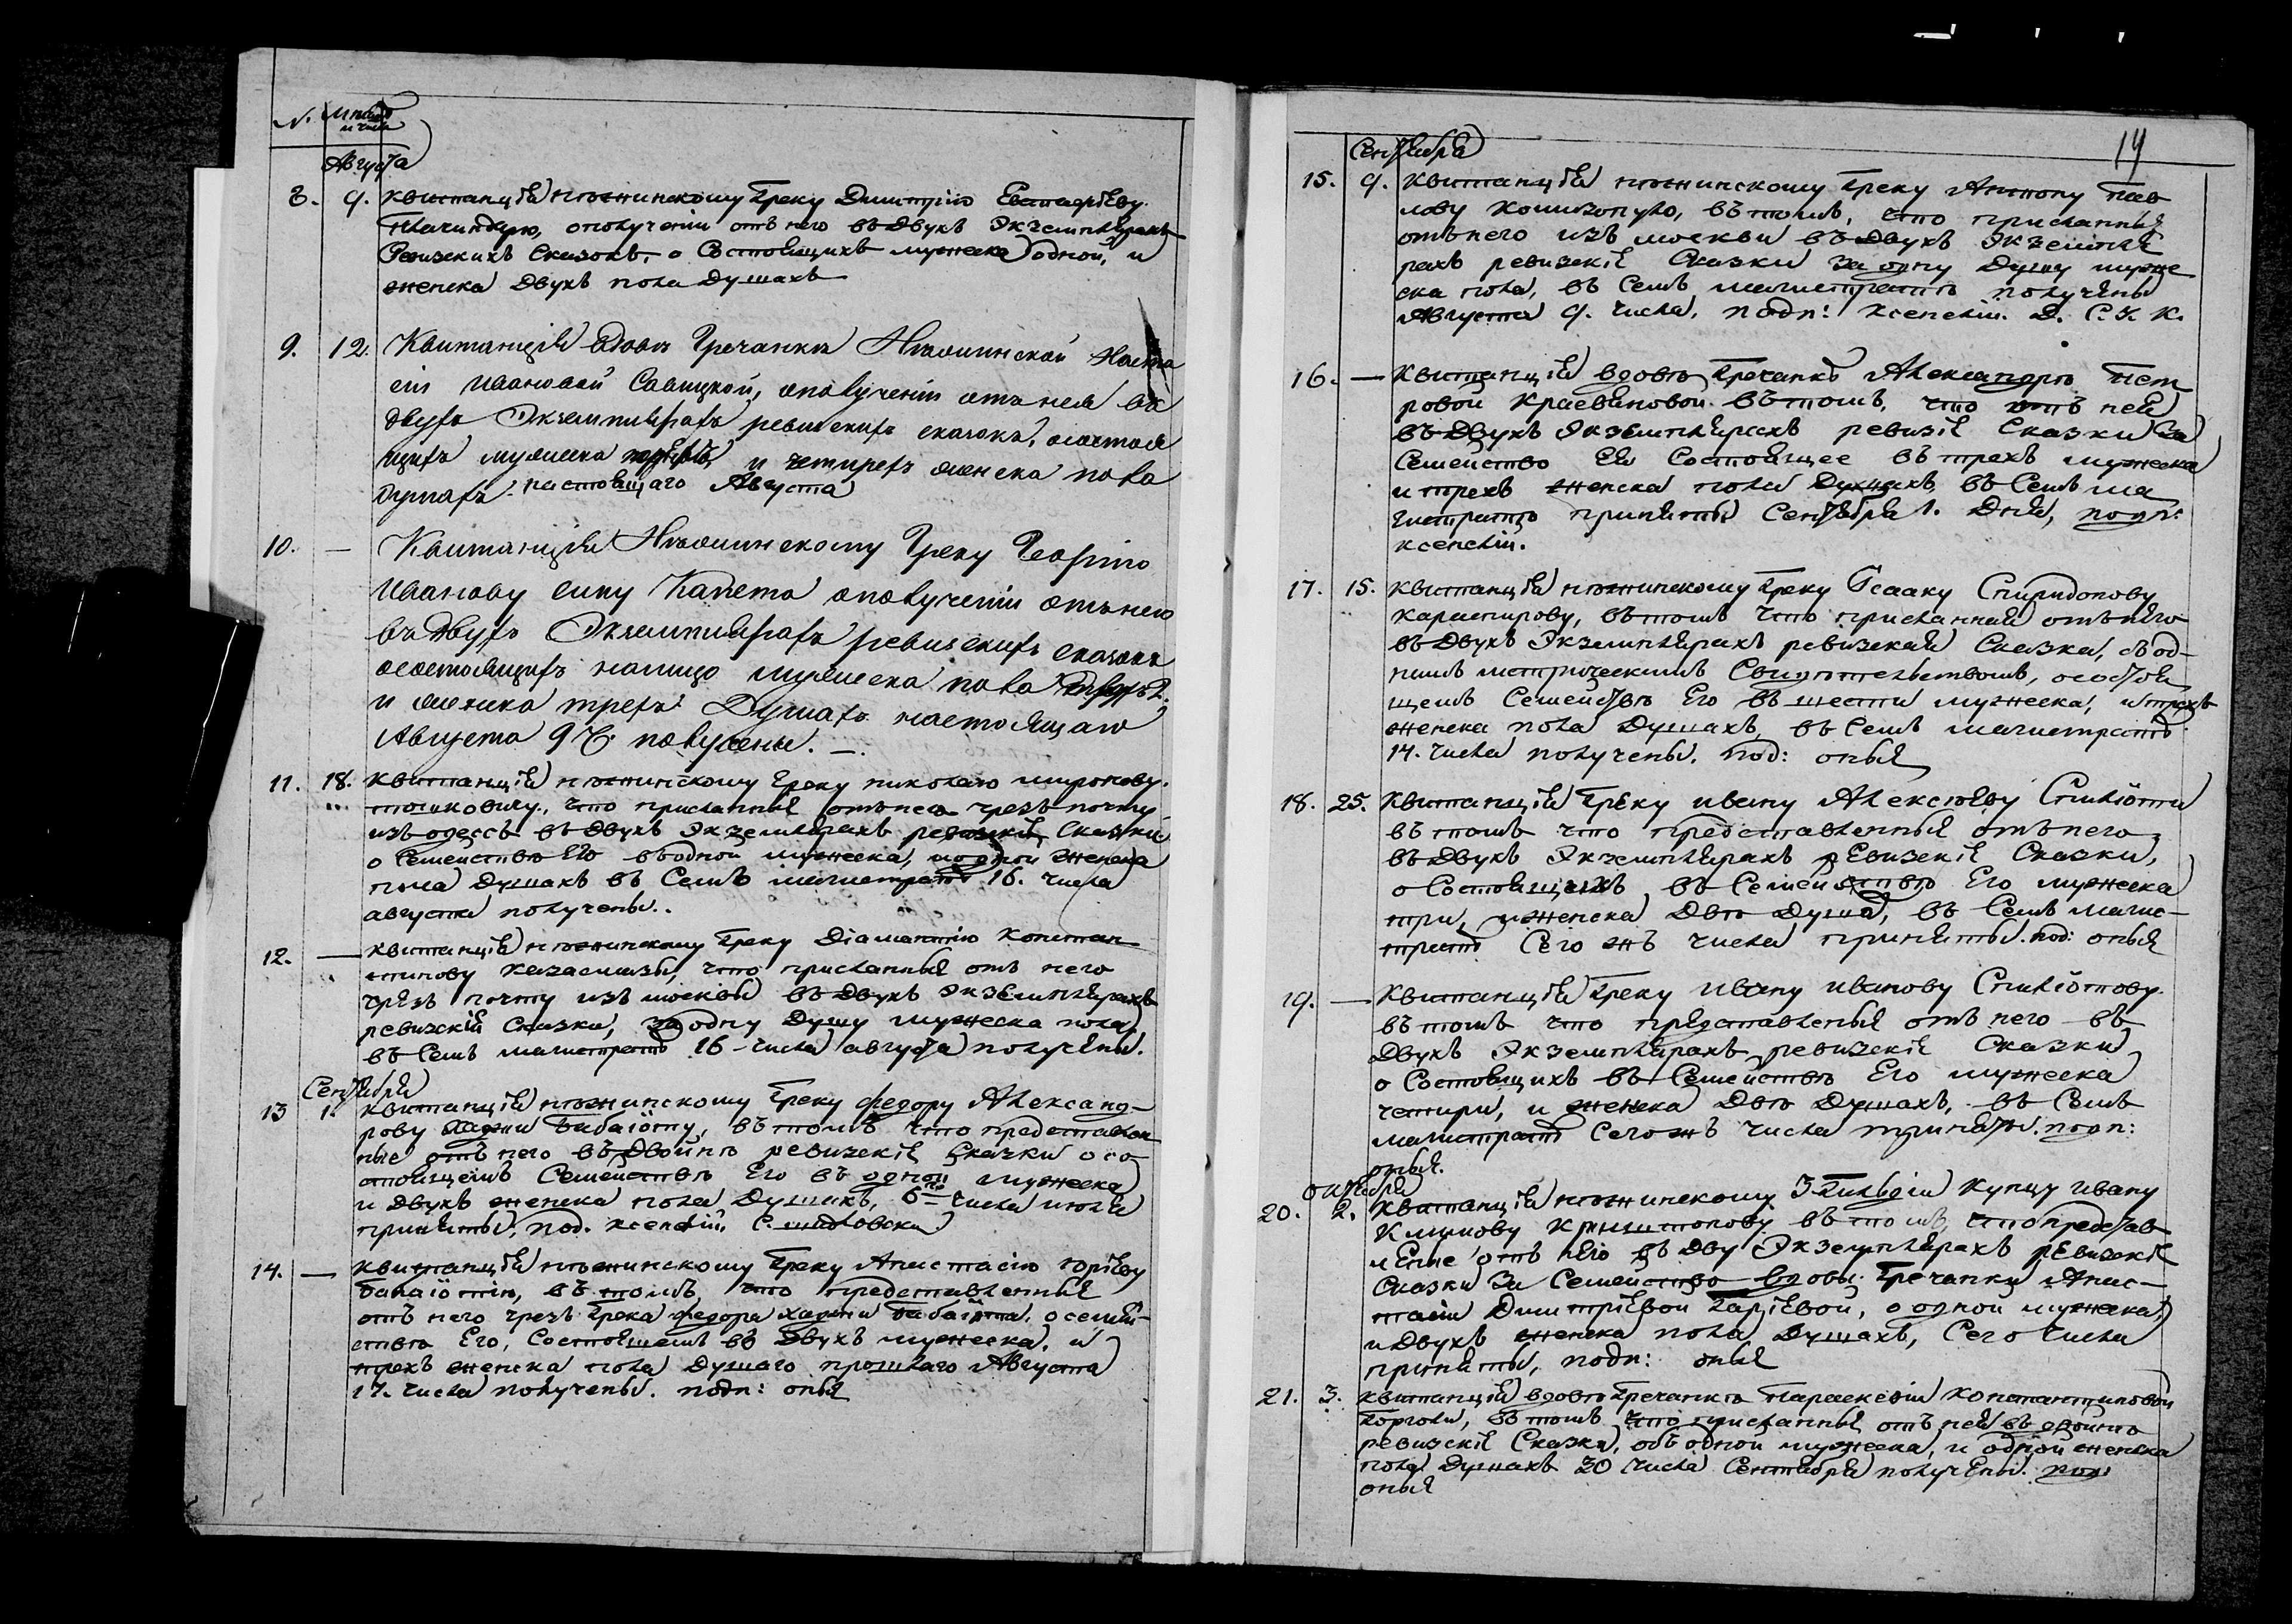 N. мѣсяцъ
и число
Августа
8. 9. Квитанція нѣжинскому Греку Дмитрію Евстафіеву
о полученіи отъ него въ Двухъ Экземплярахъ
Ревизскихъ Сказокъ, о Состоящихъ мужеска одной, и
женска Двухъ пола Душахъ
9. 12. Квитанція вдовѣ Гречанкѣ Нѣжинской Наста
сіи Ивановой Савицкой, о полученіи отъ нея въ
двухъ Экземплярахъ ревизскихъ сказокъ, о состоя
щихъ мужеска и четирехъ женска пола
душахъ настоящаго Августа
10. — Квитанція Нѣжинскому Греку Георгію
Иванову сину Капета о полученіи отъ него
въ двухъ Экземплярахъ ревизскихъ сказокъ
о состоящихъ налицо мужеска пола
и женска трехъ Душахъ настоящаго
Августа 9 ч. получены. —.
11. 18. Квитанція нѣжинскому Греку николаю миронову
тошковичу, что присланныя отъ него чрезъ почту
изъ одессъ въ Двухъ Экземплярахъ ревизскія Сказки
о Семействѣ Его въ одной мужеска, и одной женска
пола Душахъ въ Семъ магистратѣ 16. числа
августа получены..
12. — Квитанція нѣжинскому Греку Діамантію Констан
тинову казасмазы, что присланныя отъ него
чрезъ почту изъ москвы въ Двухъ Экземплярахъ
ревизскія Сказки, за одну Душу мужеска пола,
въ Семъ магистратѣ 16 - числа августа получены.
Сентября
13 1. Квитанція нѣжинскому Греку федору Александ-
рову хаджи бабаіоту, въ томъ что представлен
ные отъ него въ Двойнѣ ревизскія Сказки о со
стоящемъ Семействѣ Его въ одной мужеска
и Двухъ женска пола Душахъ, 6го числа июля
приняты, под. ксенсній, С.
14. — Квитанція нѣжинскому Греку Анастасію Юріеву
въ томъ, что представленныя
отъ него чрезъ Грека федора хаджи бабаіота, о семей-
ствѣ Его, Состоящемъ въ Двухъ мужеска, и
трехъ женска пола Душаго прошлаго Августа
17. числа получены. подп: оныя
14
Сентября
15. 9. Квитанція нѣжинскому Греку Антону пав
лову комизопуло, въ томъ, что присланныя
отъ него изъ москвы въ Двухъ Экземпля
рахъ ревизскія Сказки за одну Душу муже
ска пола, въ Семъ магистратѣ получены
Августа 9. числа, подп: ксенсній. Д. С. К. К.
16. — Квитанція вдовѣ Гречанкѣ Александрѣ пет
ровой краевановой въ томъ, что отъ ней
въ Двухъ Экземплярахъ ревизіе Сказки за
Семейство Ея Состоящее въ трахъ мужеска
и трехъ женска пола Душахъ, въ Семъ ма
гистратѣ приняты Сентября 1. Дня, подп:
ксенсній.
17. 15. Квитанція нѣжинскому Греку Ісааку Спиридонову
карастирову, въ томъ что присланная отъ него
въ Двухъ Экземплярахъ ревизская Сказка, съ од-
нимъ метрическимъ Свидѣтельствомъ, о состоя
щемъ Семействѣ Его въ шести мужеска, и трахъ
женска пола Душахъ, въ Семъ магистратѣ
14. числа получены. под: оныя
18. 25. Квитанція Греку ивану Алексѣеву Спиліоти
въ томъ что представленныя отъ него
въ Двухъ Экземплярахъ рЕвизскіе Сказки,
о Состоящихъ въ Семействѣ Его мужеска
три, и женска Двѣ Душа, въ Семъ магис-
тратѣ Сего жъ числа приняты. под: оныя
19. — Квитанція Греку ивану иванову Спиліотову
въ томъ что представленыя отъ него въ
Двухъ Экземплярахъ ревизскіе Сказки
о Состоящихъ въ Семействѣ Его мужеска
четири, и женска Двѣ Душахъ, въ Семъ
магистратѣ Сего жъ числа приняты. подп:
оныя.
октября
20. 2. Квитанція нѣжинскому 3 Гильдіи купцу ивану
Климову Криштопову въ томъ, что представ
леніе отъ него въ Дву Экземплярахъ рЕвизскіе
Сказки за Семейство вдовы Гречанки Анас-
тасіи Дмитріевой Гаріевой, о одной мужеска,
и Двухъ женска пола Душахъ, Сего числа
приняты, подп: оныя
21. 3. Квитанція вдовѣ Гречанкѣ Параскевіи Константиновой
въ томъ что присланныя отъ ней въ двойнѣ
ревизскіе Сказки, объ одной мужеска, и одной женска
пола Душахъ 20 числа Сентября получены. под:
оныя